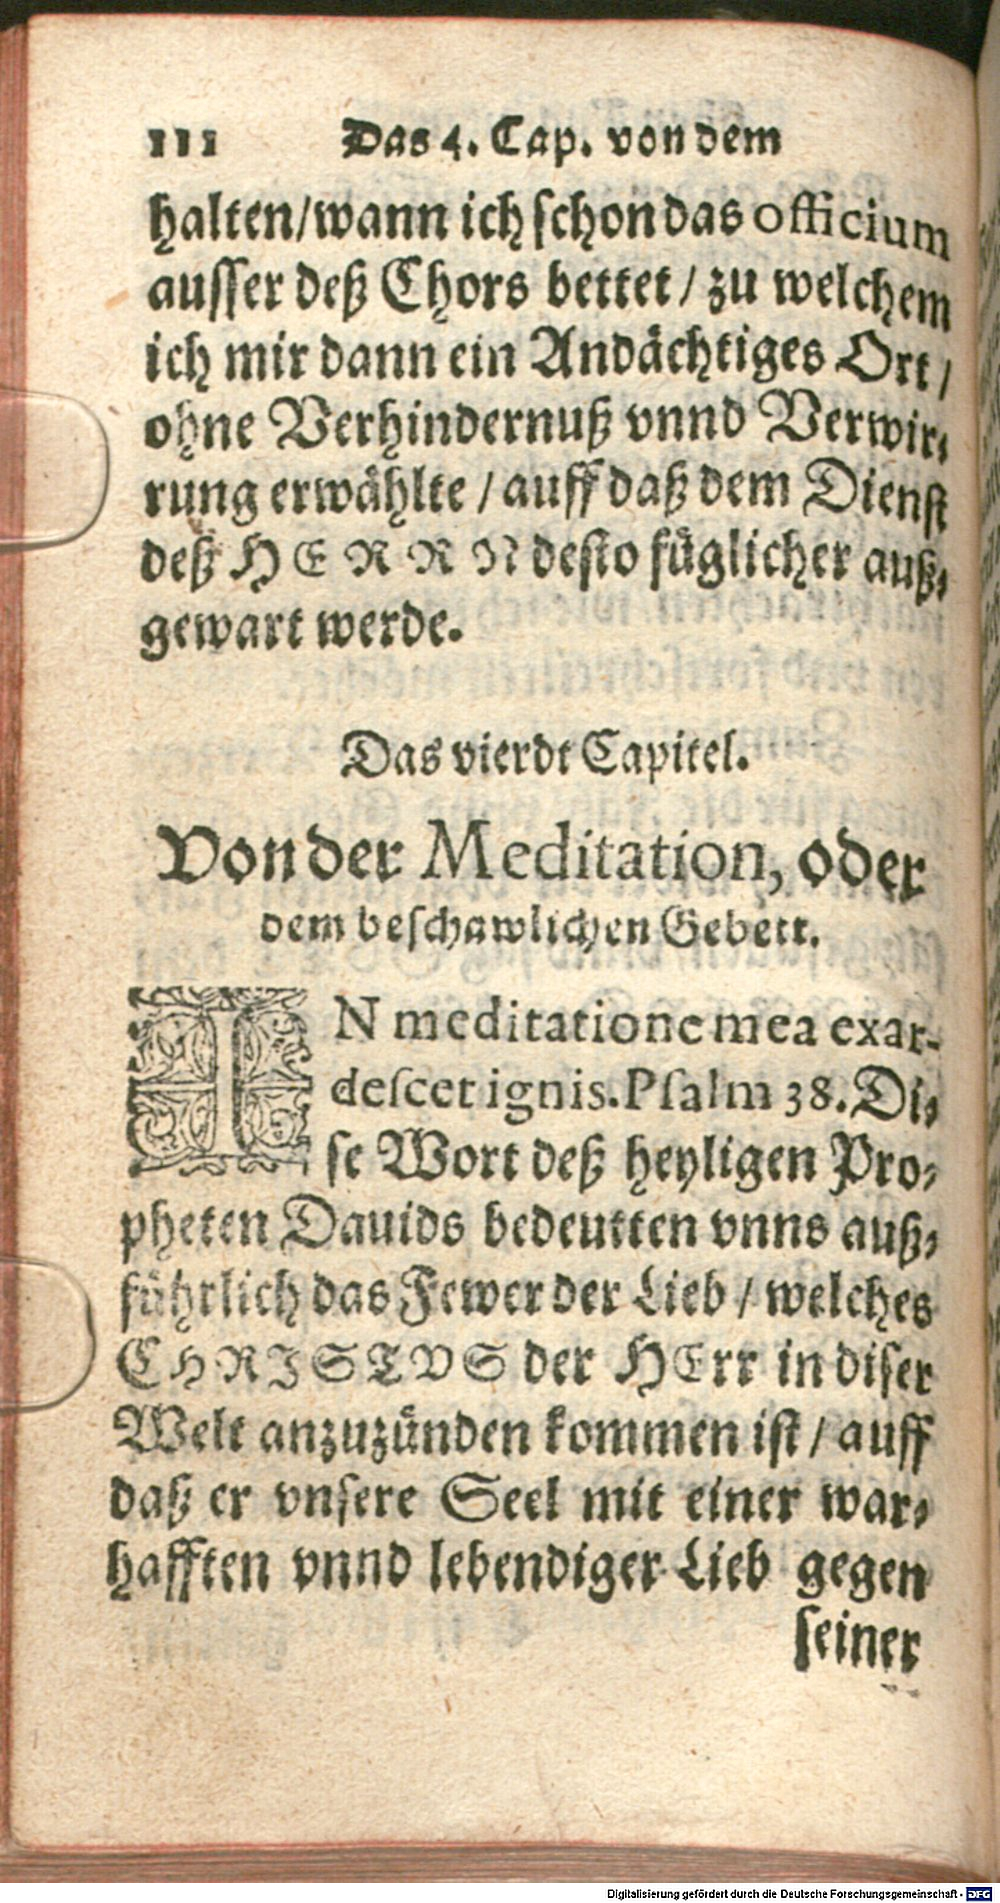 111 Das 4. Cap. von dem
halten/wann ich schon das officium
ausser deß Chors bettet / zu welchem
ich mir dann ein Andächtiges Ort /
ohne Verhindernuß vnnd Verwir-
rung erwählte / auff daß dem Dienst
deß HERRN desto füglicher auß-
gewart werde.
Das vierdt Capitel.
Von der Meditation, oder
dem beschawlichen Gebett.
IN meditatione mea exar-
descet ignis. Psalm 38. Di-
se Wort deß heyligen Pro-
pheten Dauids bedeutten vnns auß-
führlich das Fewer der Lieb / welches
CHRISTVS der HErr in diser
Welt anzuzünden kommen ist / auff
daß er vnsere Seel mit einer war-
hafften vnnd lebendiger Lieb gegen
seiner
Digitalisierung gefördert durch die Deutsche Forschungsgemeinschaft - DFG